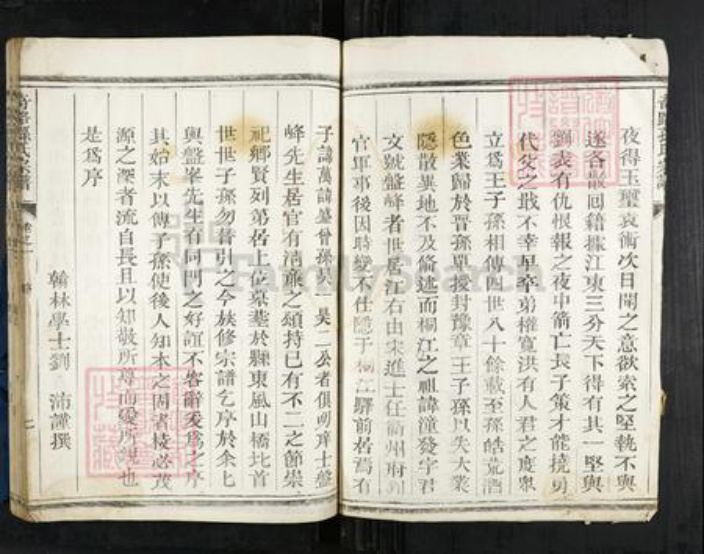 夜得玉璽袁術次日聞之意欲索之堅執不與
遂各散回籍據江東三分天下得有其一堅與
劉表有仇恨報之夜中箭亡長子策才能撓勇
代父之戰不幸早卒弟權寬洪有人君之度衆
立爲王子孫相傳四世八十餘載至孫皓荒酒
色業歸於晉孫單授封豫章王子孫以失大業
隱散異地不及備述而桐江之祖諱潼發字君
文號盤峰者世居江右由宋進士任衢州府判
官軍事後因時變不仕隱于桐江驛前居焉有
子諱萬諱盛曾孫吴一吴二公者俱明庠士盤
峰先生居官有清廉之頌持己有不二之節崇
祀鄉賢列第居上位棄塟於縣東風山橋北首
世世子孫勿替引之今族修宗譜乞序於余七
與盤峯先生有同門之好誼不容辭爰爲之序
其始末以傳子孫使後人知本之固者枝必茂
源之深者流自長且以知敬所尊而愛所親也
是爲序
翰林學士劉 沛謹撰
宗譜
卷之一
序
二
FamilySearch